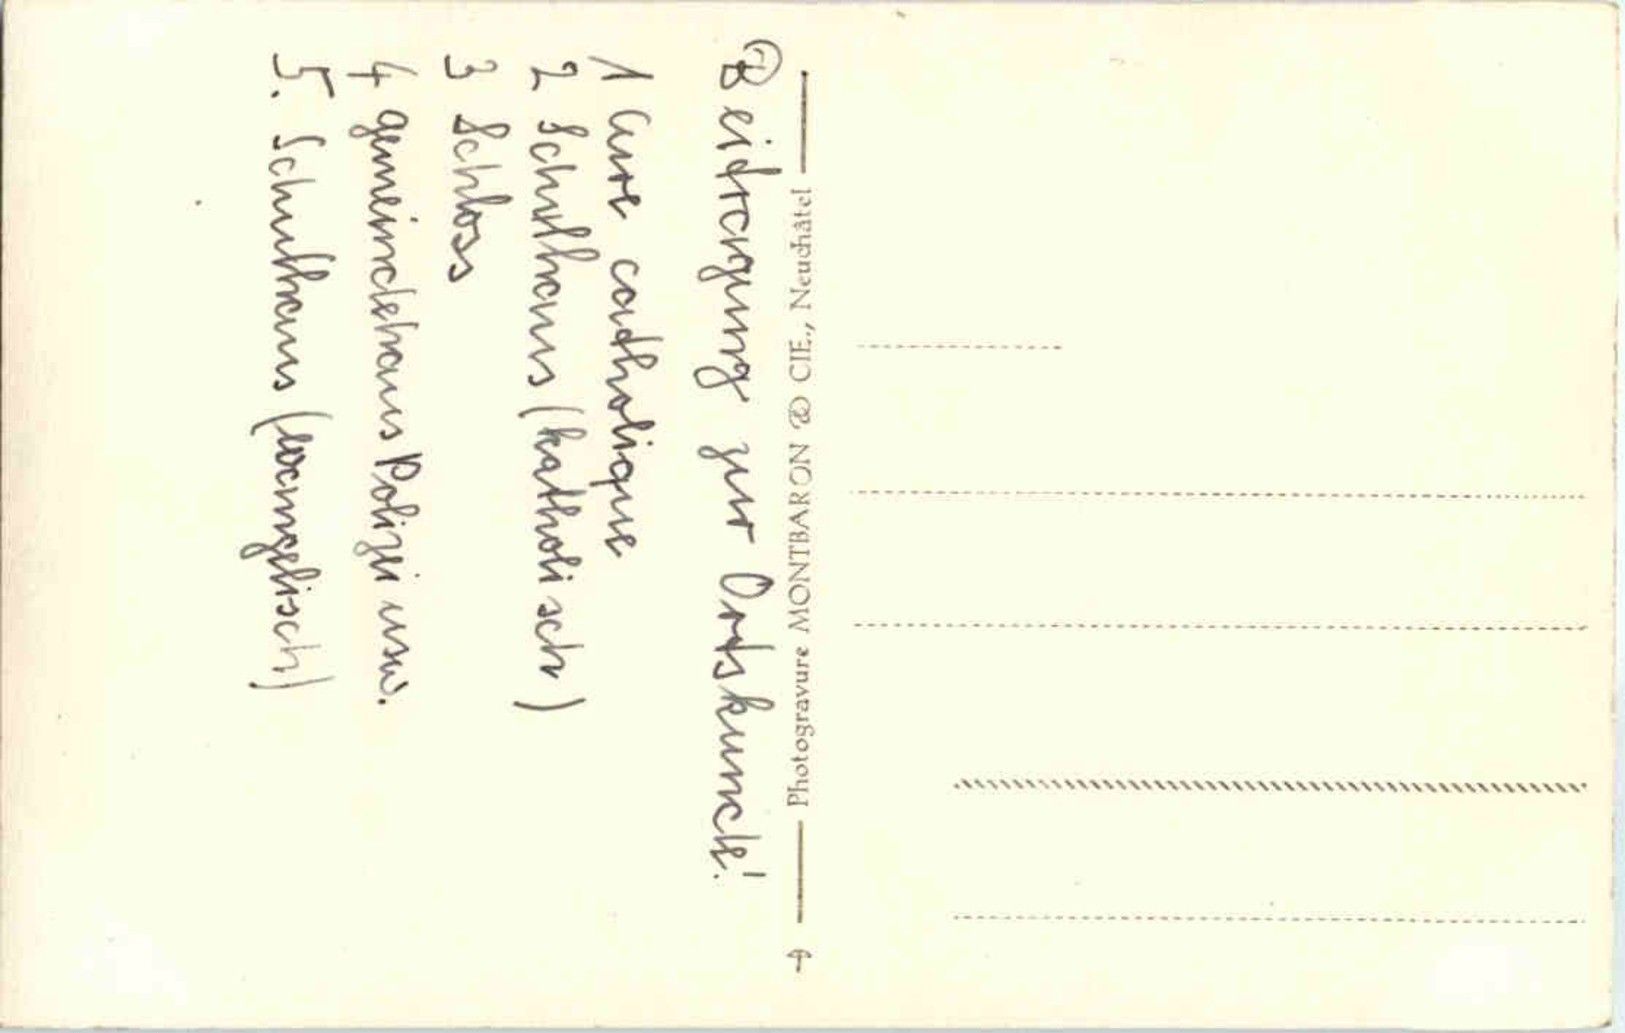 Beitragung zur Ortskunde!
1 Cure catholique
2 Schulhaus (katholisch)
3 Schloss
4 gemeindehaus Polizei usw.
5. Schulhaus (evangelisch)
Photogravure MONTBARON & CIE., Neuchâtel